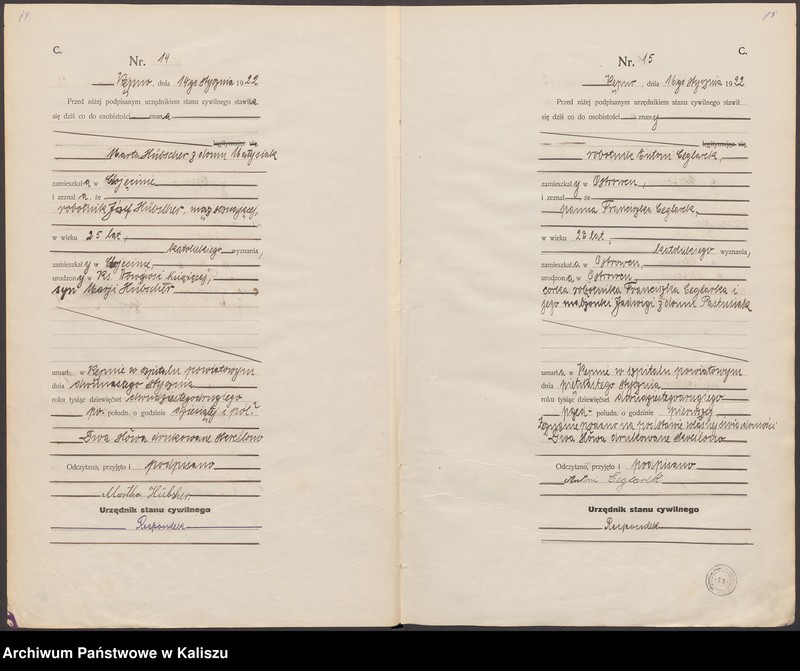 14
C.
Nr. 14
Kępno, dnia 14go stycznia 1922
Przed niżej podpisanym urzędnikiem stanu cywilnego stawiła
się dziś co do osobistości znana
legitymując się
Marta Hübscher z domu Matysiak
zamieszkała w
i zeznała, że
robotnik Józef Hübscher, mąż
w wieku 25 lat,
katolickiego wyznania,
zamieszkały w
urodzony w Ks.
syn Marji Hübscher
umarł w Kępnie w szpitalu powiatowym
dnia dwunastego stycznia
roku tysiąc dziewięćset dwudziestegodrugiego
po połudn. o godzinie i pół.
Dwa słowa drukowane skreślono
Odczytano, przyjęto i podpisano
Martha Hübscher
Urzędnik stanu cywilnego
Respondek
15
C.
Nr. 15
Kępno, dnia 16go stycznia 1922
Przed niżej podpisanym urzędnikiem stanu cywilnego stawił
się dziś co do osobistości znany
legitymując się
robotnik Antoni Ceglarek,
zamieszkały w Ostrowcu,
i zeznał, że
panna Franciszka Ceglarek,
w wieku 23 lat,
katolickiego wyznania,
zamieszkała w Ostrowcu,
urodzona w Ostrowcu
córka robotnika Franciszka Ceglarka i
jego małżonki Jadwigi z domu Pastusiak
umarła w Kępnie w szpitalu powiatowym
dnia piętnastego stycznia
roku tysiąc dziewięćset dwudziestegodrugiego
przed połudn. o godzinie pierwszej
Zeznanie podano na podstawie własnej świadomości
Dwa słowa drukowane skreślono
Odczytano, przyjęto i podpisano
Antoni Ceglarek
Urzędnik stanu cywilnego
Respondek
Archiwum Państwowe w Kaliszu